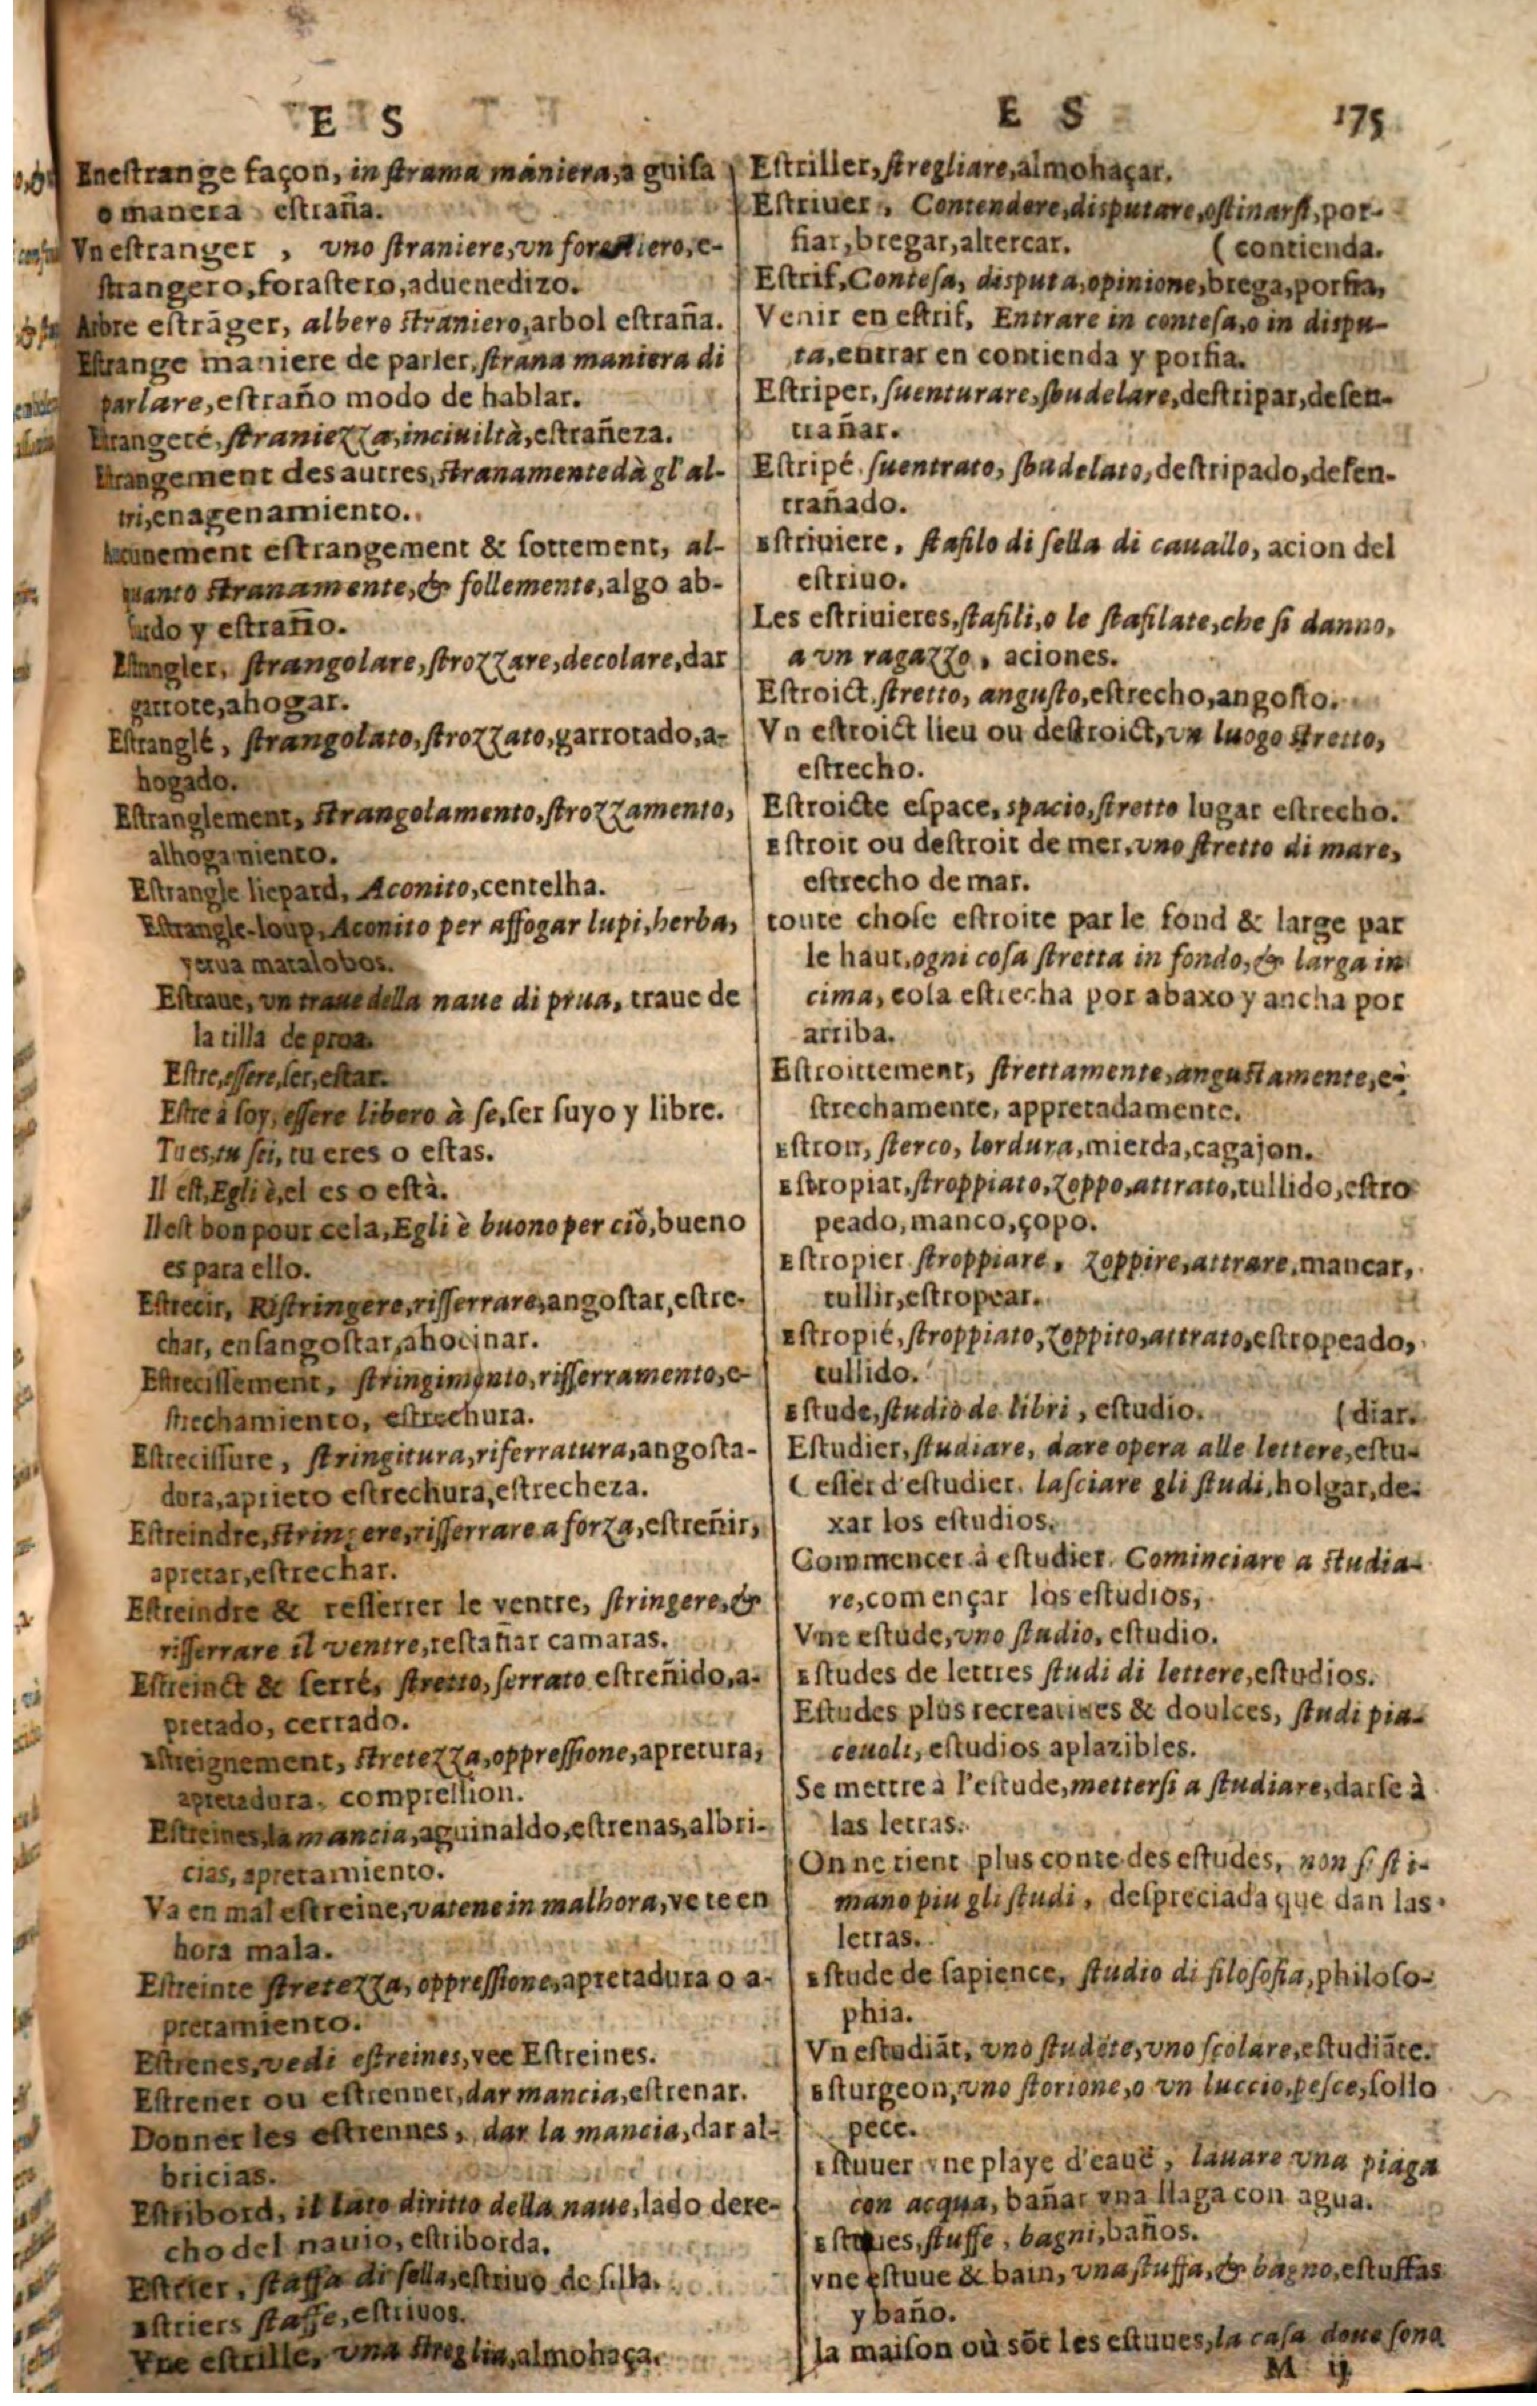 E S
Enestrange façon, in strama maniera, a guisa
o manera estraña.
Vn estranger, vno straniere, vn forestiero, e-
strangero, forastero, aduenedizo.
Arbre estrãger, albero straniero, arbol estraña.
Estrange maniere de parler, strana maniera di
parlare, estraño modo de hablar.
Estrangeté, straniezza, inciuiltà, estrañeza.
Estrangement des autres, stranamente dà gl'al-
tri, enagenamiento.
Aucunement estrangement & sottement, al-
quanto stranamente, & follemente, algo ab-
surdo y estraño.
Estrangler, strangolare, strozzare, decolare, dar
garrote, ahogar.
Estranglé, strangolato, strozzato, garrotado, a-
hogado.
Estranglement, strangolamento, strozzamento,
alhogamiento.
Estrangle liepard, Aconito, centelha.
Estrangle-loup, Aconito per affogar lupi, herba,
yerua matalobos.
Estraue, vn traue della naue di prua, traue de
la tilla de proa.
Estre, essere, ser, estar.
Estre à soy, essere libero à se, ser suyo y libre.
Tu es, tu sei, tu eres o estas.
Il est, Egli è, el es o està.
Il est bon pour cela, Egli è buono per ciò, bueno
es para ello.
Estrecir, Ristringere, risserrare, angostar, estre-
char, ensangostar, ahocinar.
Estrecissement, stringimento, risserramento, e-
strechamiento, estrechura.
Estrecissure, stringitura, riserratura, angosta-
dura, aprieto estrechura, estrecheza.
Estreindre, stringere, risserrare a forza, estreñir,
apretar, estrechar.
Estreindre & resserrer le ventre, stringere, &
risserrare il ventre, restañar camaras.
Estreinct & serré, stretto, serrato estreñido, a-
pretado, cerrado.
Estreignement, stretezza, oppressione, apretura,
apretadura, compression.
Estreines, la mancia, aguinaldo, estrenas, albri-
cias, apretamiento.
Va en mal estreine, vatene in malhora, ve te en
hora mala.
Estreinte stretezza, oppressione, apretadura o a-
pretamiento.
Estrenes, vedi estreines, vee Estreines.
Estrener ou estrenner, dar mancia, estrenar.
Donner les estrennes, dar la mancia, dar al-
bricias.
Estribord, il lato diritto della naue, lado dere-
cho del nauio, estriborda.
Estrier, staffa di sella, estriuo de silla.
Estriers staffe, estriuos.
Vne estrille, vna streglia, almohaça.
E S 175
Estriller, stregliare, almohaçar.
Estriuer, Contendere, disputare, ostinarsi, por-
fiar, bregar, altercar. (contienda.
Estrif, Contesa, disputa, opinione, brega, porfia,
Venir en estrif, Entrare in contesa, o in dispu-
ta, entrar en contienda y porfia.
Estriper, suenturare, sbudelare, destripar, desen-
trañar.
Estripé suentrato, sbudelato, destripado, desen-
trañado.
Estriuiere, stafilo di sella di cauallo, acion del
estriuo.
Les estriuieres, stafili, o le stafilate, che si danno,
a vn ragazzo, aciones.
Estroict stretto, angusto, estrecho, angosto.
Vn estroict lieu ou destroict, vn luogo stretto,
estrecho.
Estroicte espace, spacio, stretto lugar estrecho.
Estroit ou destroit de mer, vno stretto di mare,
estrecho de mar.
toute chose estroite par le fond & large par
le haut, ogni cosa stretta in fondo, & larga in
cima, cosa estrecha por abaxo y ancha por
arriba.
Estroittement, strettamente, angustamente, e-
strechamente, appretadamente.
Estron, sterco, lordura, mierda, cagajon.
Estropiat, stroppiato, zoppo, attrato, tullido, estro
peado, manco, çopo.
Estropier stroppiare, zoppire, attrare, mancar,
tullir, estropear.
Estropié, stroppiato, zoppito, attrato, estropeado,
tullido.
Estude, studio de libri, estudio. (diar.
Estudier, studiare, dare opera alle lettere, estu-
Cesser d'estudier, lasciare gli studi, holgar, de-
xar los estudios.
Commencer à estudier. Cominciare a studia-
re, començar los estudios,
Vne estude, vno studio, estudio.
Estudes de lettres studi di lettere, estudios.
Estudes plus recreatiues & doulces, studi pia-
ceuoli, estudios aplazibles.
Se mettre à l'estude, mettersi a studiare, darse à
las letras.
On ne tient plus conte des estudes, non si sti-
mano piu gli studi, despreciada que dan las
letras.
Estude de sapience, studio di filosofia, philoso-
phia.
Vn estudiãt, vno studẽte, vno scolare, estudiãte.
Esturgeon, vno storione, o vn luccio, pesce, sollo
pece.
Estuuer vne playe d'eauë, lauare vna piaga
con acqua, bañar vna llaga con agua.
Estuues, stuffe, bagni, baños.
vne estuue & bain, vna stuffa, & bagno, estuffas
y baño.
la maison où sõt les estuues, la casa doue sono
M ij